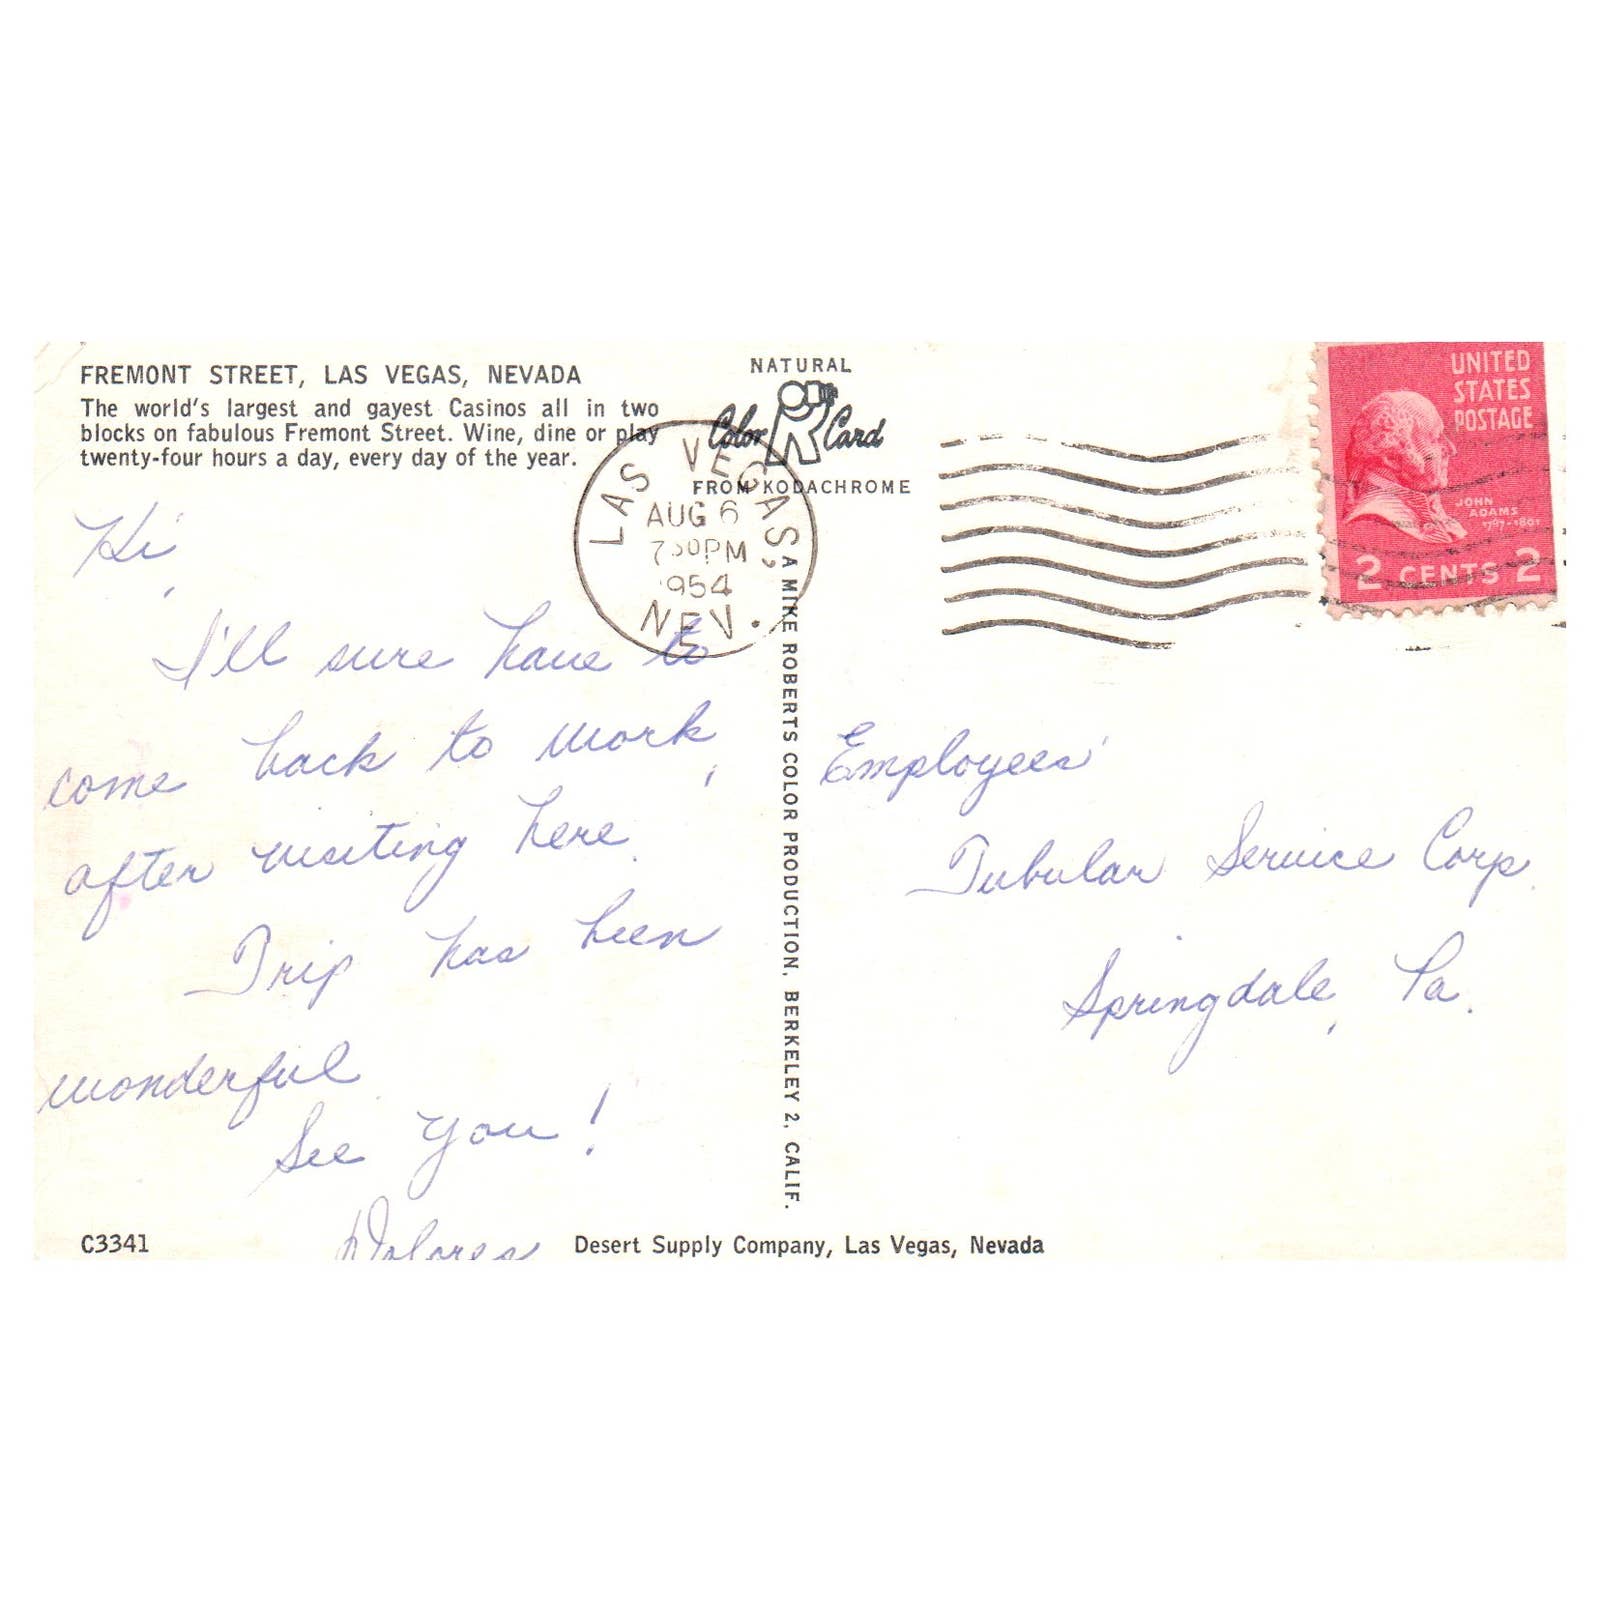 FREMONT STREET, LAS VEGAS, NEVADA
The world's largest and gayest Casinos all in two
blocks on fabulous Fremont Street. Wine, dine or play
twenty-four hours a day, every day of the year.
Hi,
I'll sure have to
come back to work,
after visiting here.
Trip has been
wonderful.
See you!
Dolores
C3341
Desert Supply Company, Las Vegas, Nevada
NATURAL
Color Card
FROM KODACHROME
LAS VEGAS,
AUG 6
7 30 PM
1954
NEV.
A MIKE ROBERTS COLOR PRODUCTION, BERKELEY 2, CALIF.
UNITED
STATES
POSTAGE
JOHN
ADAMS
1797-1801
2 CENTS 2
Employees'
Tubular Service Corp.
Springdale, Pa.